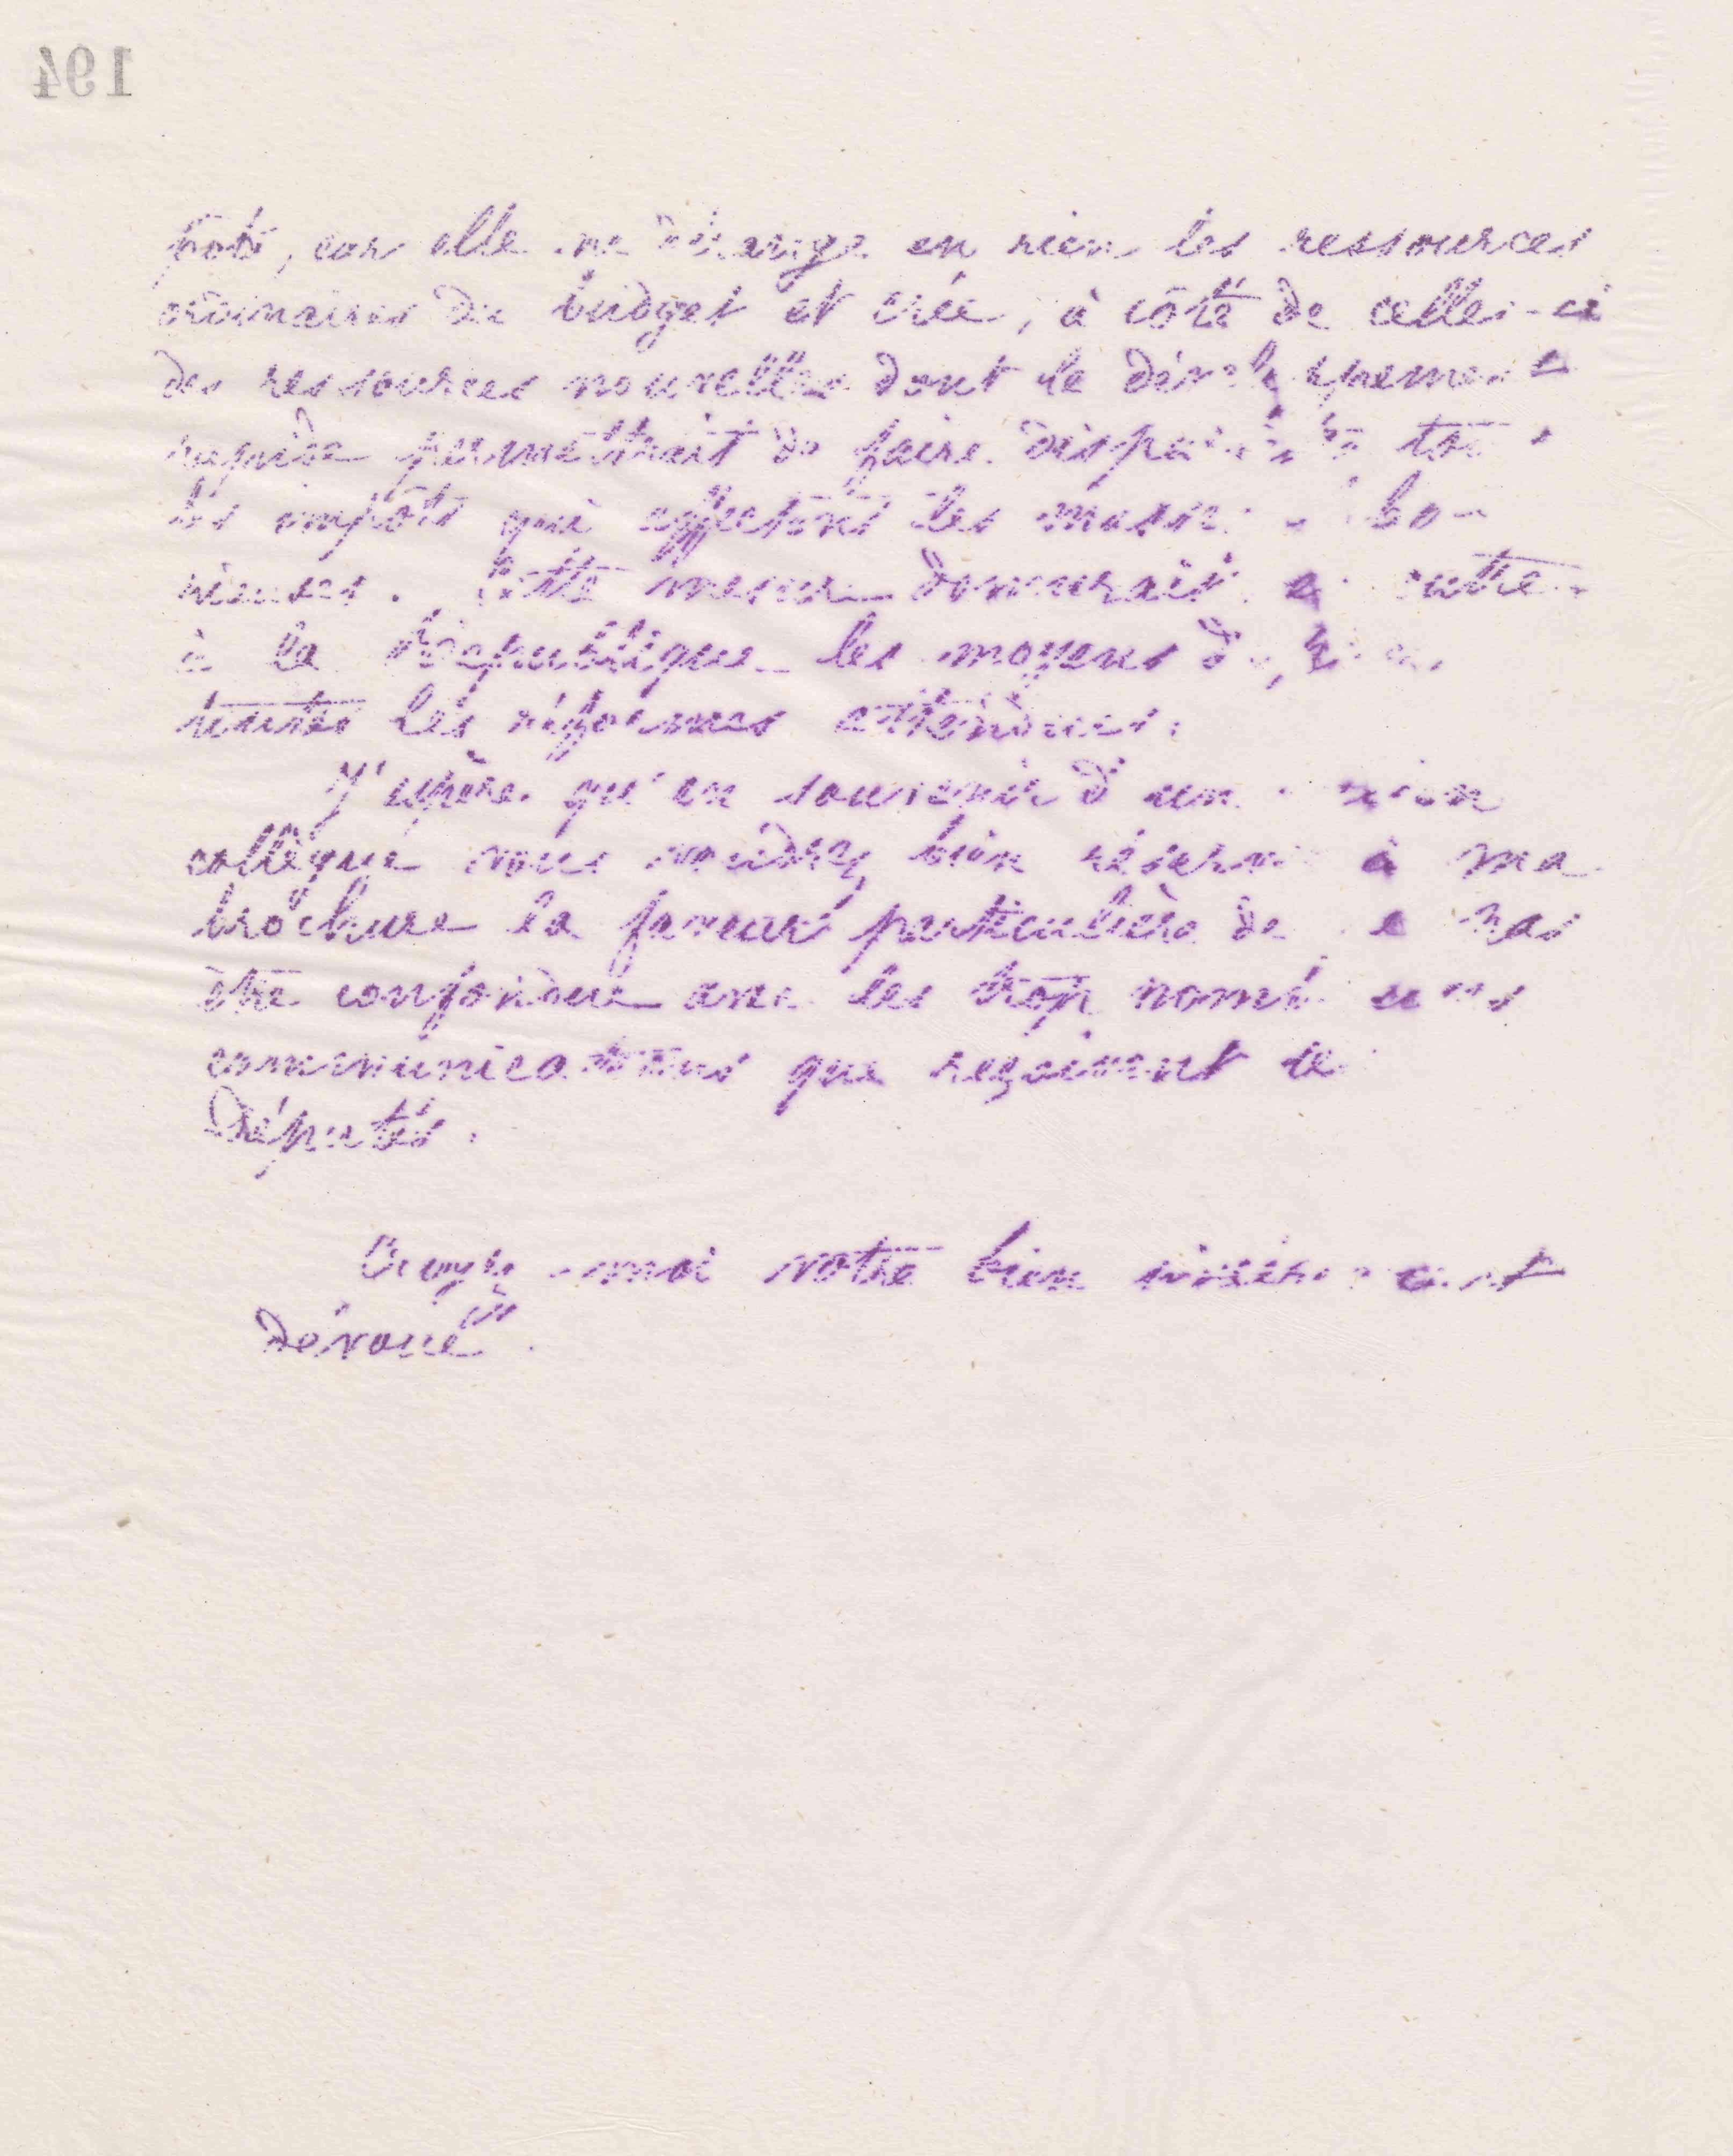 194
pots, car elle ne dérange en rien les ressources
ordinaires du budget et crée, à côté de celles-ci
des ressources nouvelles dont le développement
rapide permettrait de faire disparaître tous
les impôts qui affectent les masses labo-
rieuses. Cette mesure donnerait en outre
à la République les moyens de
toutes les réformes attendues.
J'espère qu'en souvenir d'un ancien
collègue vous voudrez bien réserver à ma
brochure la faveur particulière de ne pas
être confondue avec les trop nombreuses
communications que reçoivent les
Députés.
Croyez-moi votre bien sincèrement
dévoué.